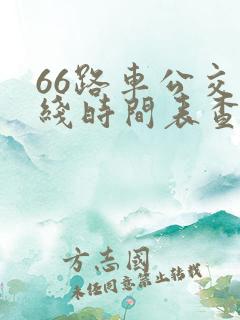 66路車公交
綫時間表查
方志國
未經同意禁止轉載